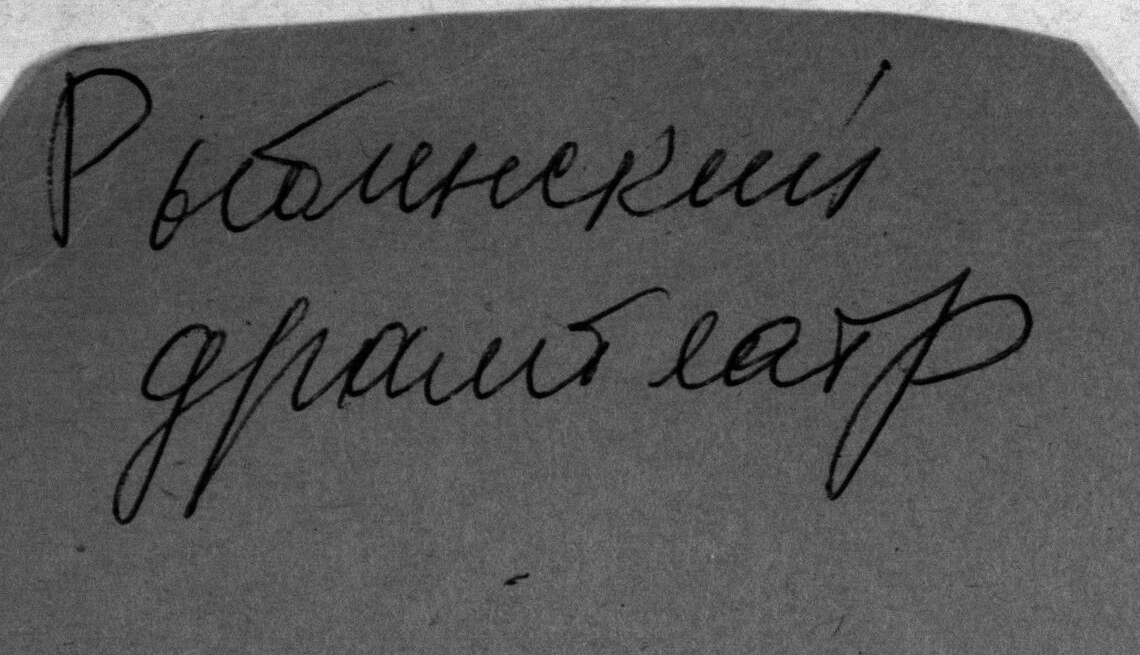 Рыбинский
драмтеатр